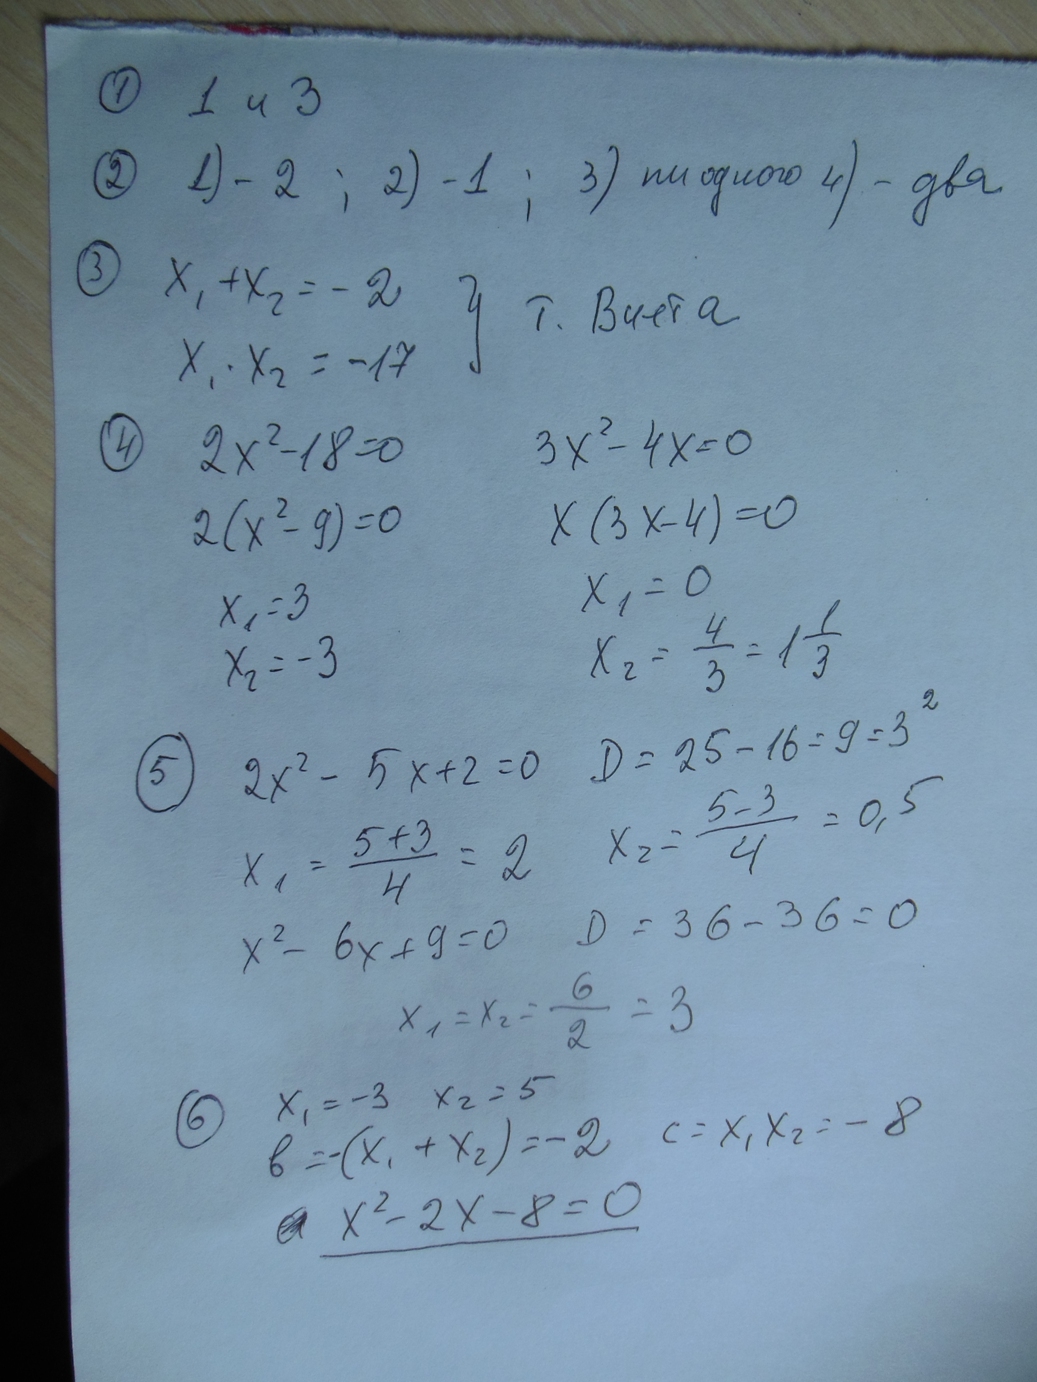 ① 1 и 3
② 1) - 2 ; 2) - 1 ; 3) ни одного 4) - два
③ x₁ + x₂ = - 2
x₁ · x₂ = -17 } т. Виета
④ 2x² - 18 = 0 3x² - 4x = 0
2(x² - 9) = 0 x(3x - 4) = 0
x₁ = 3 x₁ = 0
x₂ = -3 x₂ = 4/3 = 1 1/3
⑤ 2x² - 5x + 2 = 0 D = 25 - 16 = 9 = 3²
x₁ = (5+3)/4 = 2 x₂ = (5-3)/4 = 0,5
x² - 6x + 9 = 0 D = 36 - 36 = 0
x₁ = x₂ = 6/2 = 3
⑥ x₁ = -3 x₂ = 5
в = -(x₁ + x₂) = -2 c = x₁x₂ = - 8
x² - 2x - 8 = 0